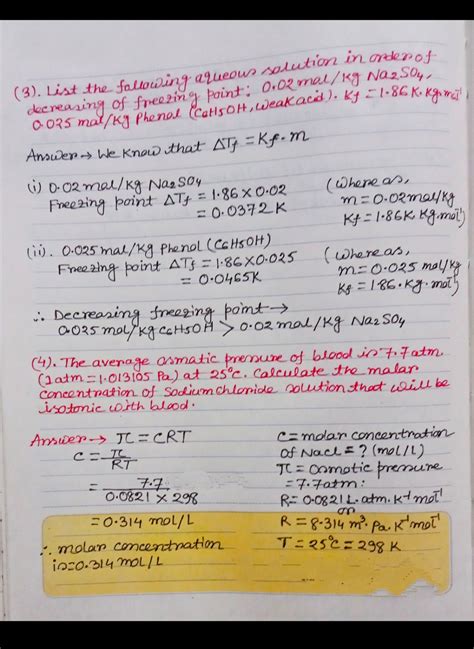 (3). List the following aqueous solution in order of
decreasing of freezing point: 0.02 mol/kg Na2SO4,
0.025 mol/kg Phenol (C6H5OH, weak acid). Kf = 1.86 K. Kg. mol-1
Answer → We know that ΔTf = Kf. m
(i) 0.02 mol/kg Na2SO4
Freezing point ΔTf = 1.86 × 0.02
= 0.0372 K
(where as,
m = 0.02 mol/kg
Kf = 1.86K. Kg. mol-1)
(ii). 0.025 mol/kg Phenol (C6H5OH)
Freezing point ΔTf = 1.86 × 0.025
= 0.0465K
(where as,
m = 0.025 mol/kg
Kf = 1.86. Kg. mol-1)
∴ Decreasing freezing point →
0.025 mol/kg C6H5OH > 0.02 mol/kg Na2SO4
(4). The average osmotic pressure of blood is 7.7 atm
(1 atm = 1.013105 Pa) at 25°C. Calculate the molar
concentration of Sodium chloride solution that will be
isotonic with blood.
Answer → π = CRT
C = π/RT
= 7.7/0.0821 × 298
= 0.314 mol/L
∴ molar concentration
is = 0.314 mol/L
C = molar concentration
of NaCl = ? (mol/L)
π = Osmotic pressure
= 7.7 atm:
R = 0.0821 L. atm. K-1 mol-1
or
R = 8.314 m3. Pa. K-1 mol-1
T = 25°C = 298 K